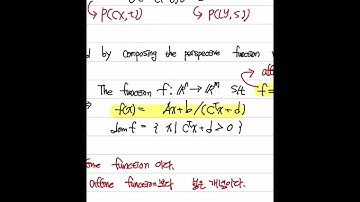 P(CX,t)    P(LY,S)
d by composing the perspective function
The function f: ℝⁿ → ℝᵐ s.t f=
f(x) = Ax+b/(Cᵀx+d)
dom f = { x | Cᵀx+d > 0 }
function 이다.
affine function보다 넓은 개념이다.